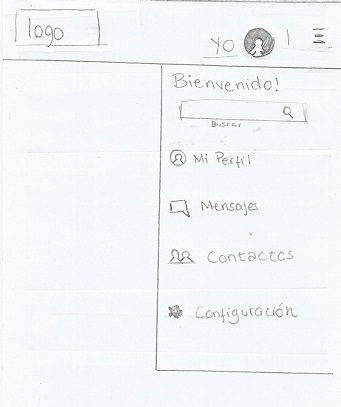 logo
Yo
Bienvenido!
Buscar
Mi Perfil
Mensajes
Contactos
Configuración